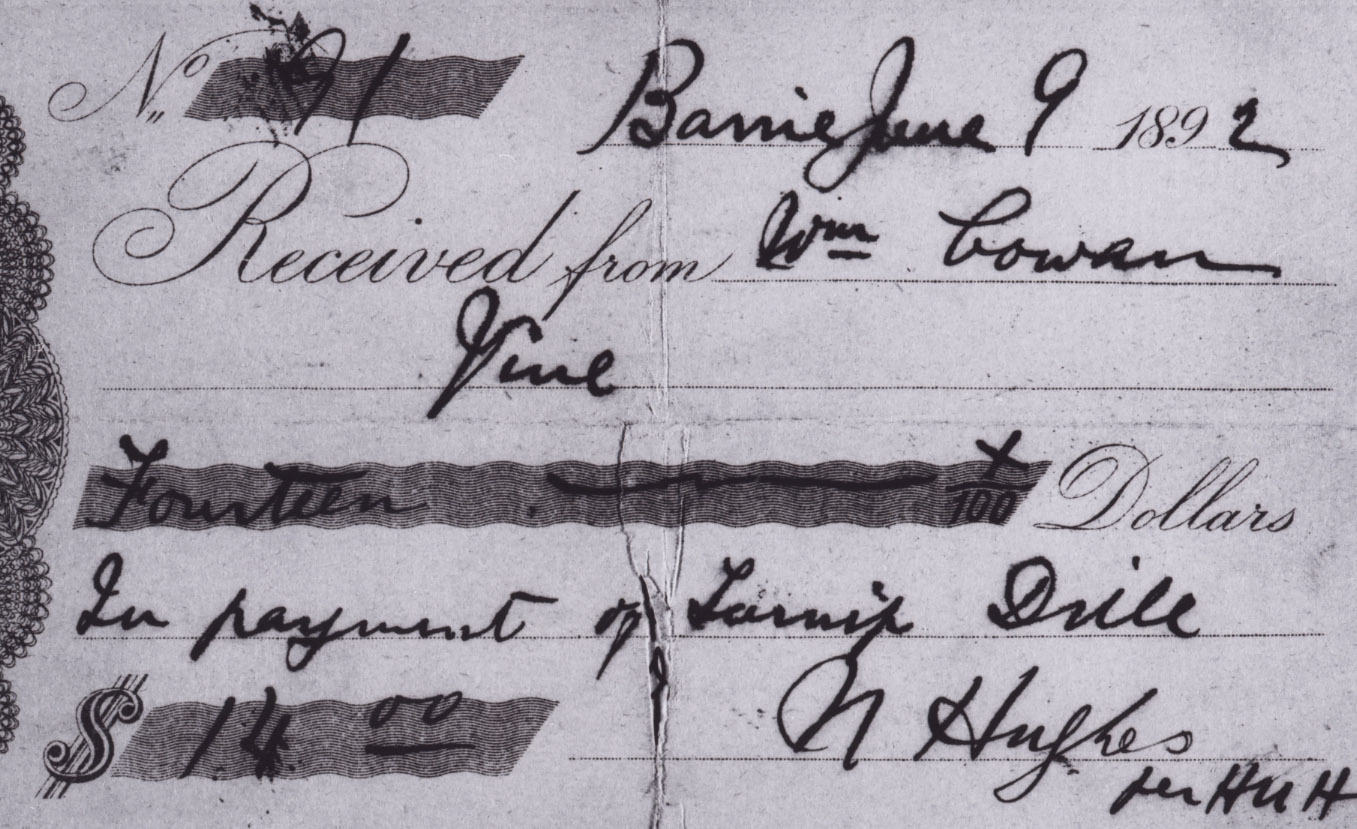 No 91 Barrie June 9 1892
Received from Wm Cowan
Vine
Fourteen x/100 Dollars
In payment of Turnip Drill
$ 14 00 N Hughes
per H N H